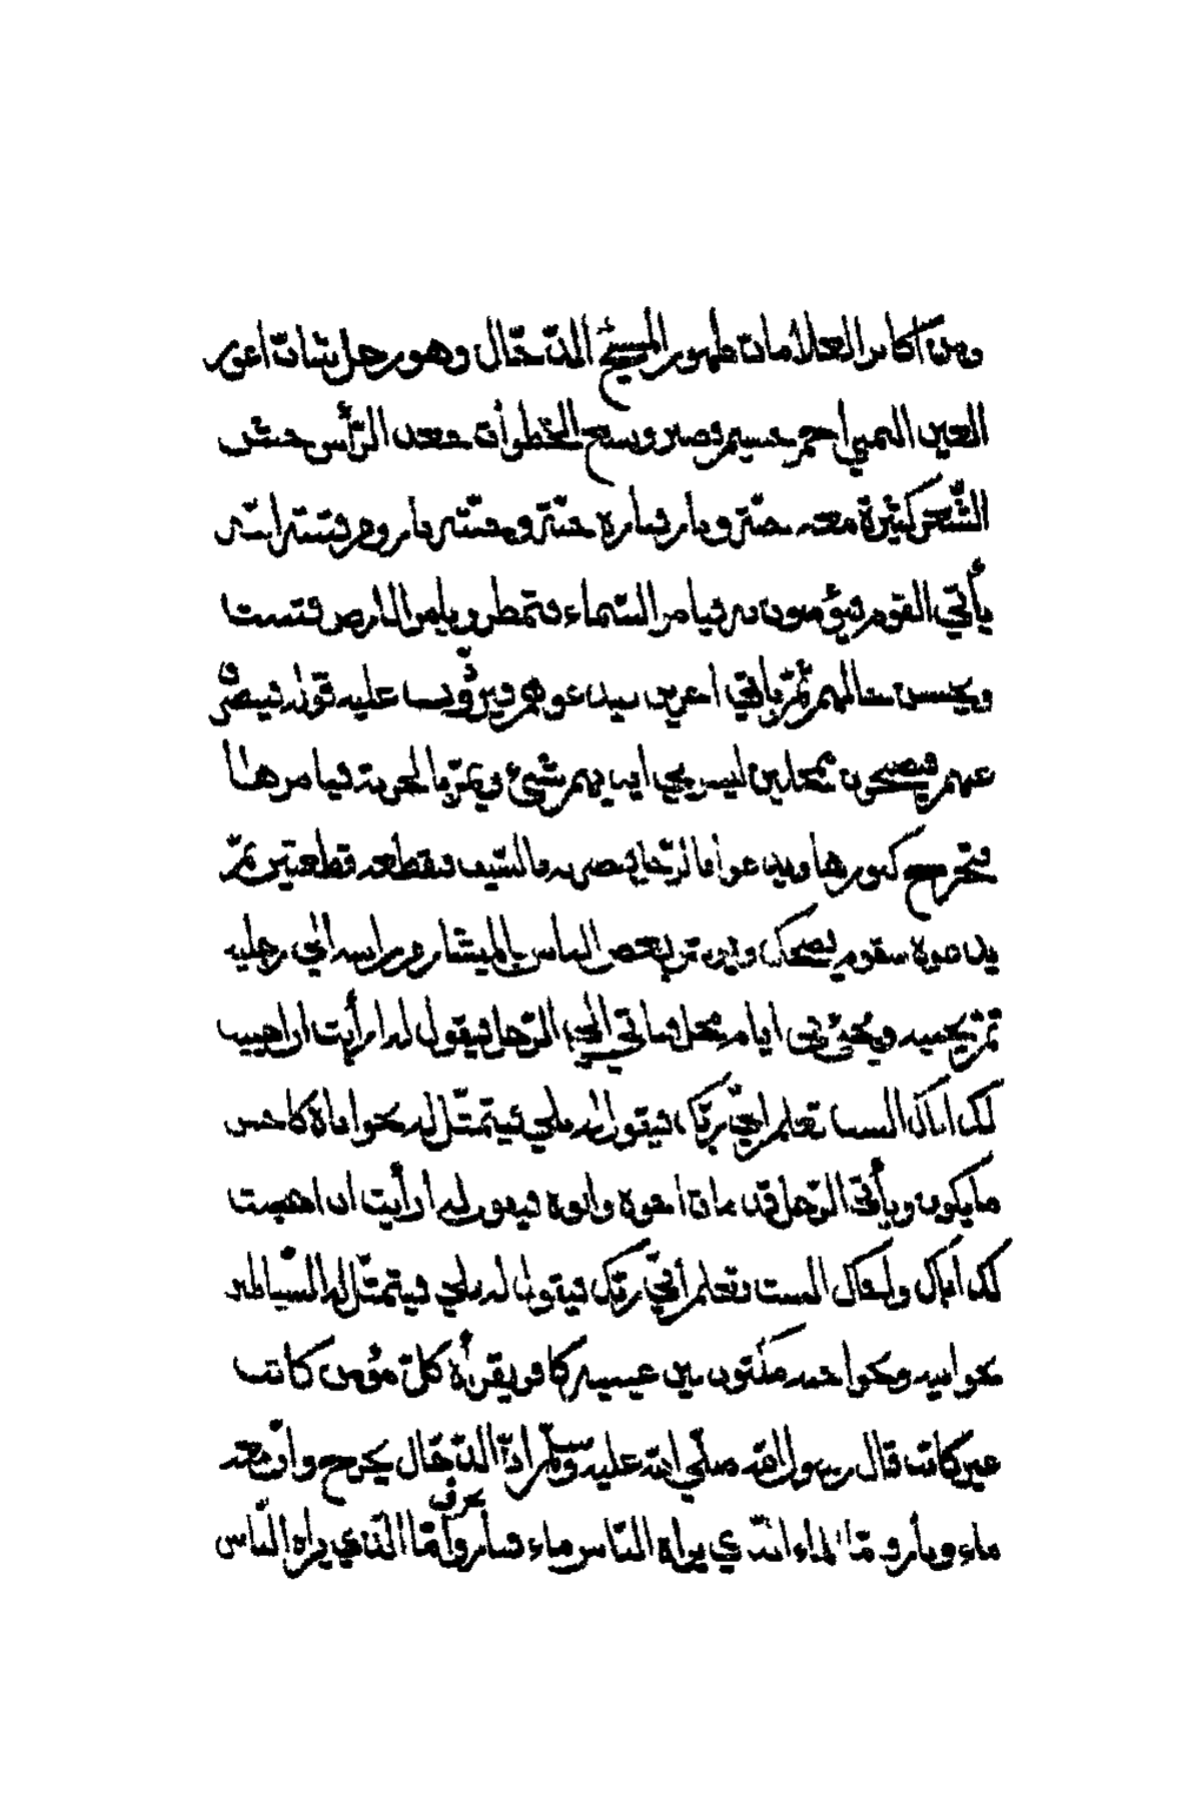 ومن أكابر العلامات ظهور المسيح الدّجّال وهو رجل شاب اعور
العين اليمني احمر جسيم قصير وسيع الخطوات جعد الرّأس حبش
الشّعر كثيرة معه جنّة ونار فناره جنّة وجنّته نار وهو فتنة
يأتي القوم فيؤمنون به فيأمر السّماء فتمطر ويأمر الارض فتنبت
ثمّ يأتي اخرين يدعوهم فيردّون عليه قوله فينصرف
عنهم فيصبحون ممحلين ليس بايديهم شيئ ويمرّ بالخربة فيأمرها
فتخرج كنوزها ويدعوا بالسّيف فيقطعه قطعتين ثمّ
يدعوه فيقوم يضحك بعض الناس بالميشار من رأسه الي رجليه
ثمّ يحييه ايام محل فيأتي الي الرّجل فيقول له ارأيت ان احييت
لك اباك الست تعلم انّي ربّك فيقول له بلي فيتمثّل له نحو اباه كاحسن
ما يكون ويأتي الرّجل قد مات اخوه وابوه فيقول له أرأيت ان احييت
لك اباك واخاك الست تعلم أنّي ربّك فيقول له بلي فيتمثّل له الشّياطين
نحو ابيه ونحو اخيه مكتوب بين عينيه كافر يقرأه كلّ مؤمن كاتب
غير كاتب قال رسول الله صلّي الله عليه وسلّم انّ الدّجّال يخرج وانّ معه
ماء ونار وامّا الماء الّذي يراه النّاس ماء فنار تحرق وامّا الّذي يراه النّاس